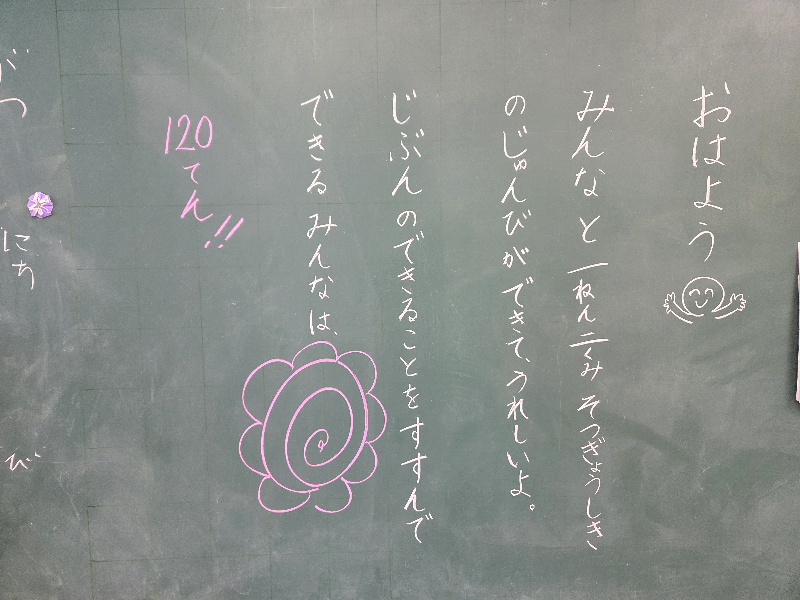 おはよう
みんなと一ねん二くみそつぎょうしき
のじゅんびができて、うれしいよ。
じぶんのできることをすすんで
できるみんなは、
120てん!!
にち